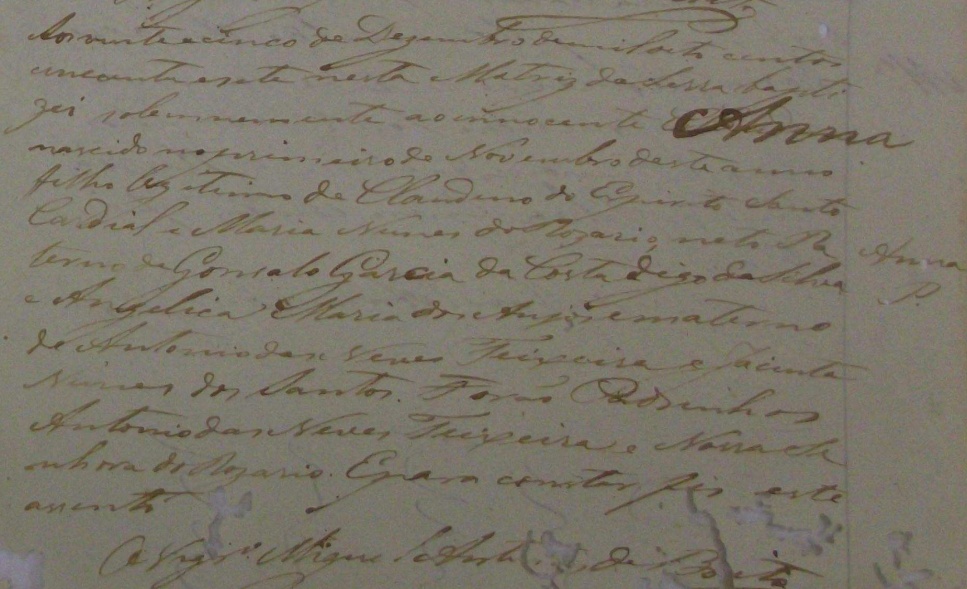 Aos vinte e cinco de Dezembro de mil oito centos
cincoenta e sete nesta Matriz da Serra bapti
zei solennemente ao innocente Anna
nascido no primeiro de Novembro deste anno
filho legitimo de Claudino do Espirito Santo
Cardial e Maria Nunes do Rozario, neto Pa
terno de Gonsalo Garcia da Costa digo da Silva
e Angelica Maria dos Anjos e materno
de Antonio das Neves Teixeira e Jacinta
Nunes dos Santos. Forão Padrinhos
Antonio das Neves Teixeira e Nossa Se
nhora do Rozario. E para constar fiz este
assento
O Vigr.º Miguel de
Anna
P.